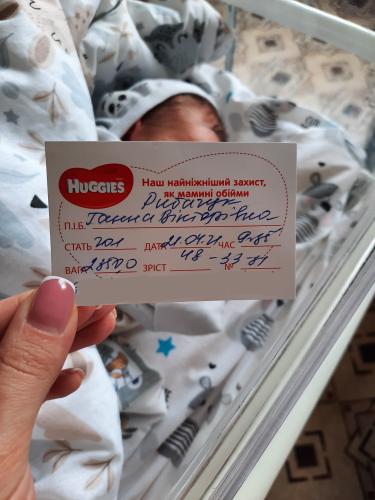 HUGGIES
Наш найніжніший захист,
як мамині обійми
Рибачук
П.І.Б. Ганна Вікторівна
СТАТЬ чол ДАТА 21.04.21 ЧАС
ВАГА ЗРІСТ 48 - 33 №